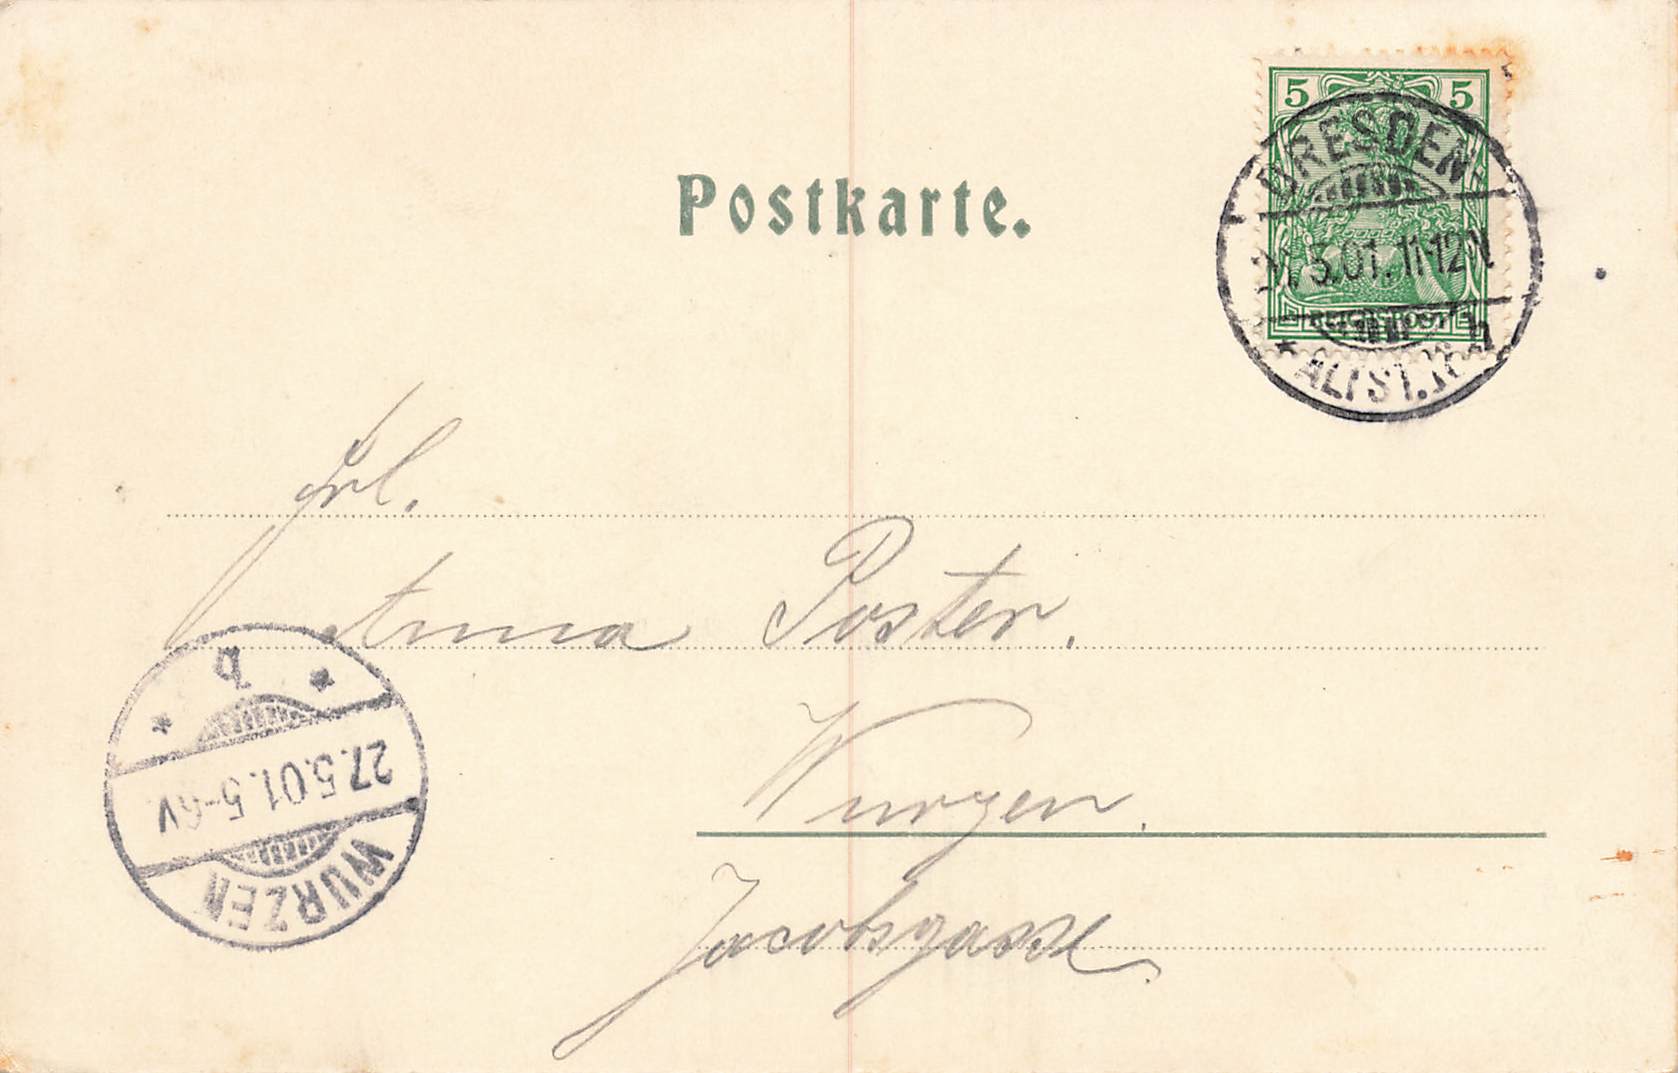 5 5
DRESDEN-
5.01. 11-12N
REICHSPOST
* ALTST.
b
Postkarte.
Frl.
Anna Poster.
Wurzen.
Jacobsgasse
WURZEN
27.5.01. 5-6V.
* b *